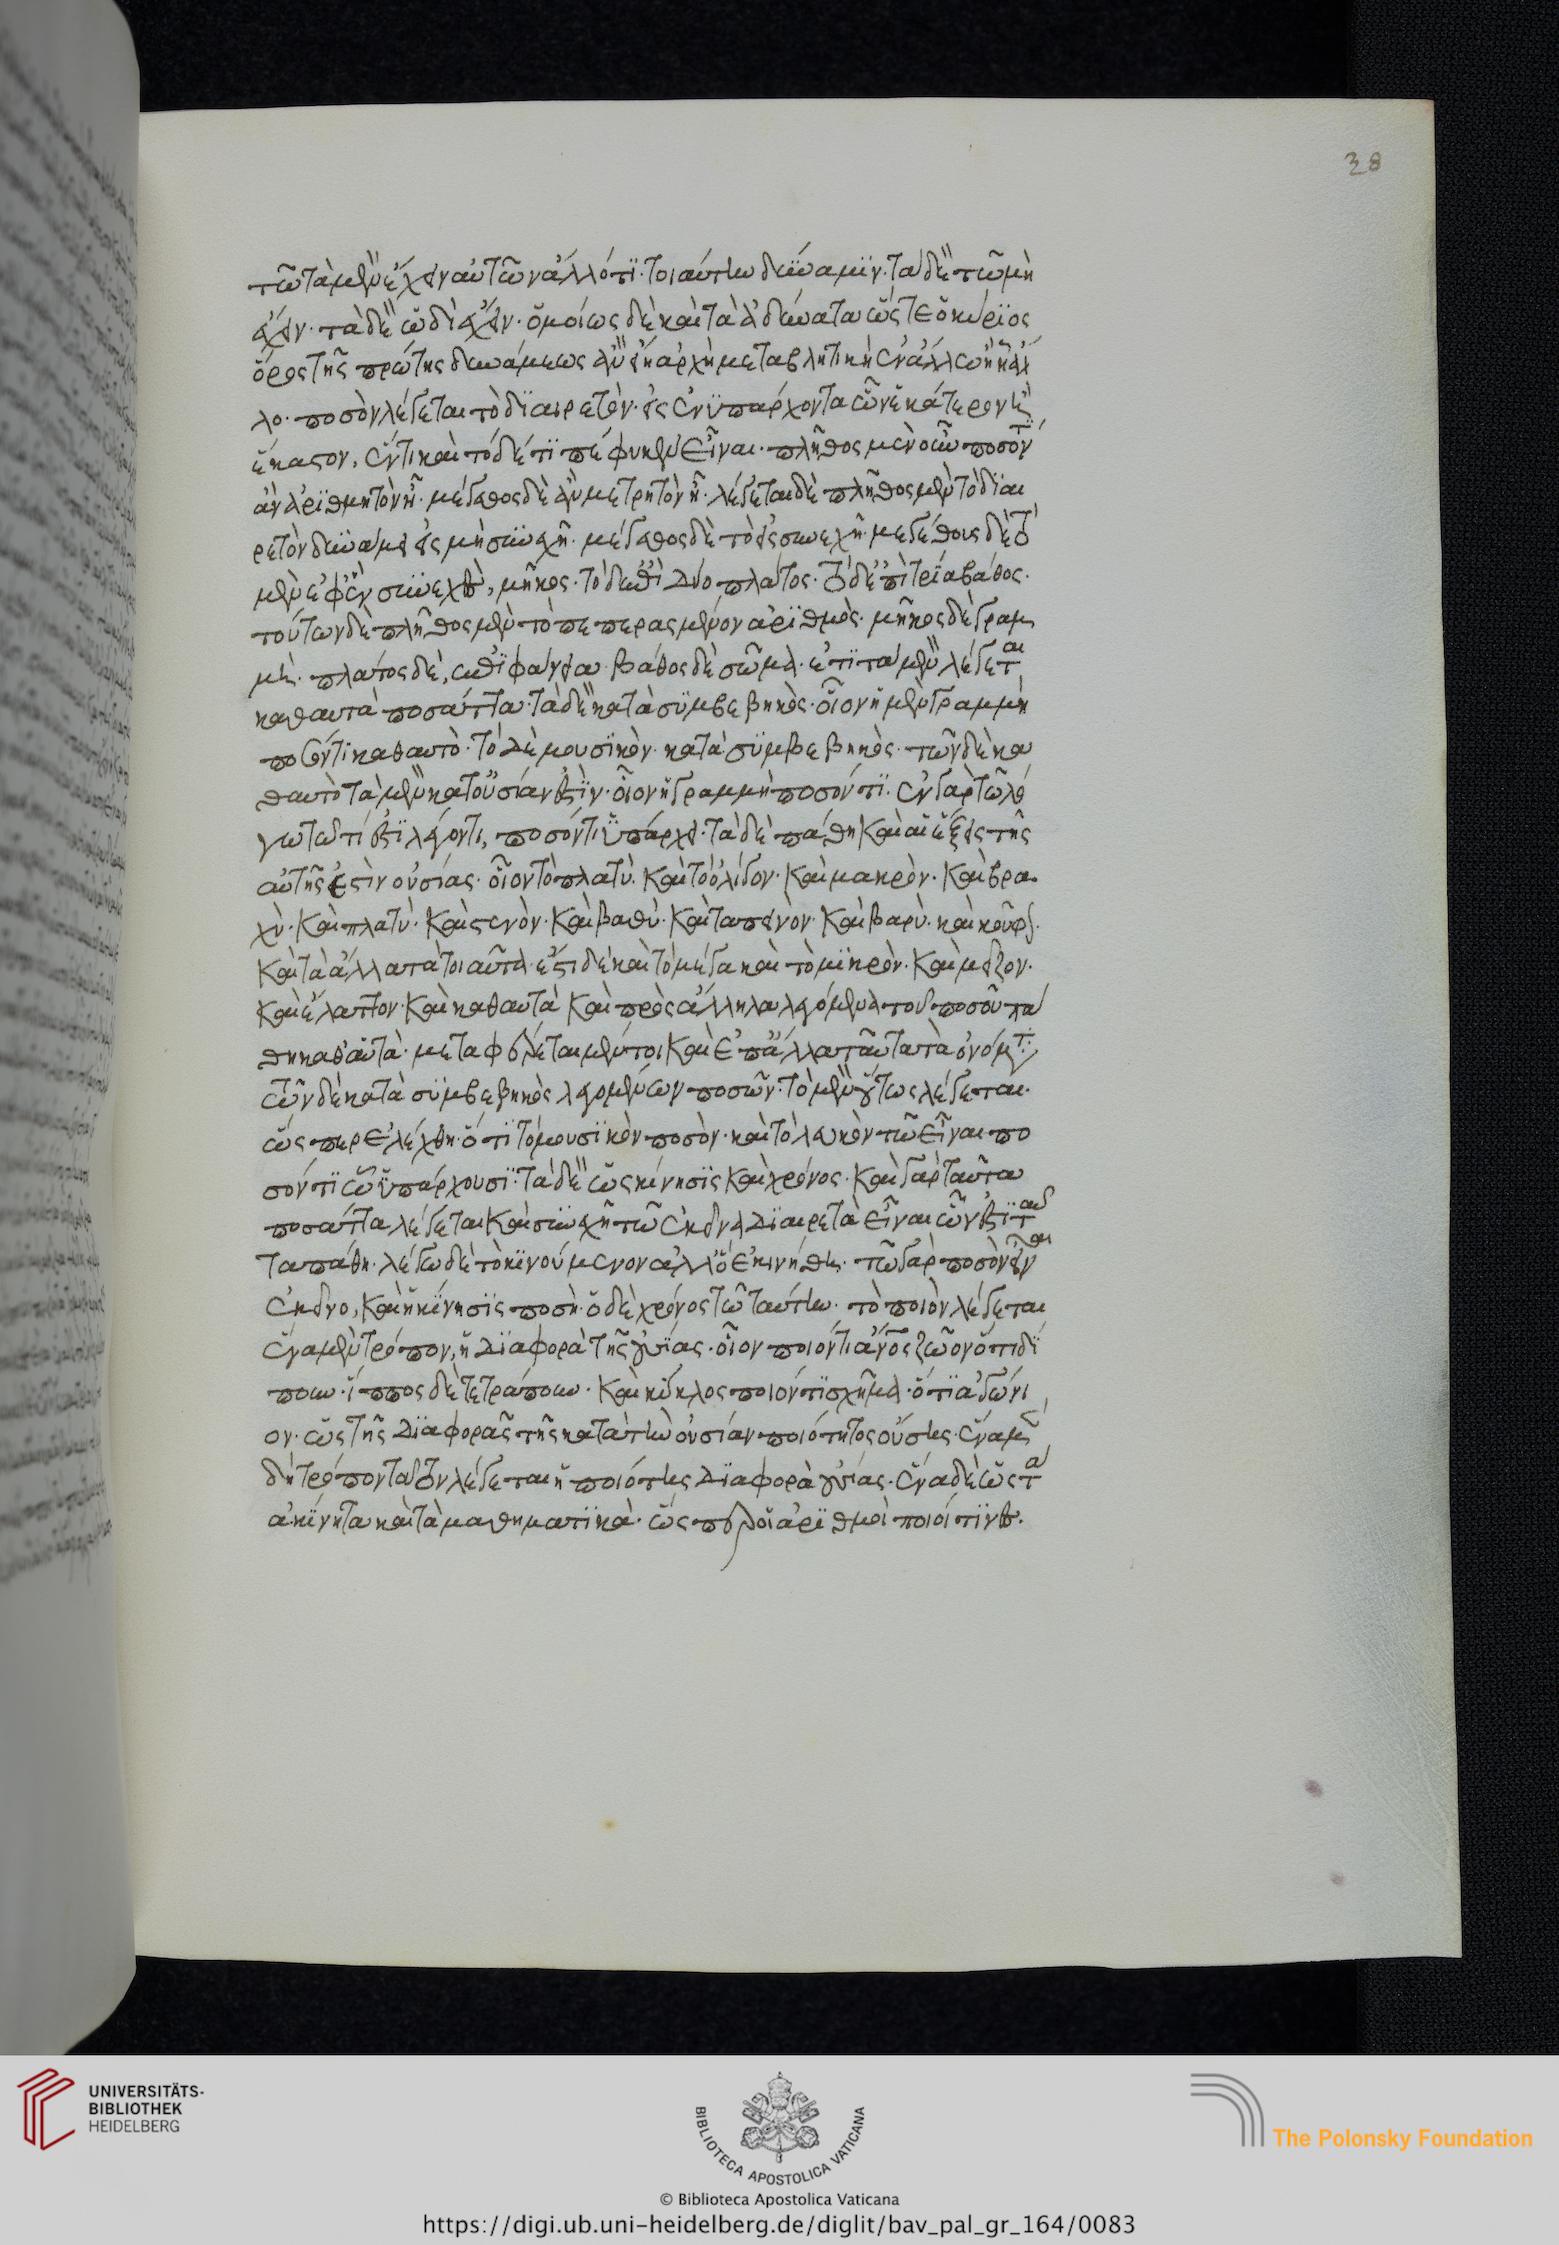 τῶ τὰ μὲν ἔχειν αὐτῶν ἄλλό τϊ· τοιαύτην δύναμϊν· τὰ δὲ τῶ μὴ
ἔχειν· τὰ δὲ ὡδὶ ἔχειν· ὁμοίως δὲ καὶ τὰ ἀδύνατα ὥστε ὁ κύρϊος
ὅρος τῆς πρώτης δυνάμεως ἂν εἴη ἀρχὴ μεταβλητικὴ ἐν ἄλλω ἢ ἧ ἄλ
λο· ποσὸν λέγεται τὸ δϊαιρετὸν· εἰς ἐνϋπάρχοντα ὧν ἑκάτερον ἢ
ἕκαστον, ἕν τι καὶ τόδέ τϊ πέφυκεν εἶναι· πλῆθος μὲν οὖν ποσόν τϊ
ἀν ἀρϊθμητὸν ἦ· μέγεθος δὲ ἂν μετρητὸν ἦ· λέγεται δὲ πλῆθος μὲν τὸ δϊαι
ρετὸν δυνάμει εἰς μὴ συνεχῆ· μέγεθος δὲ τὸ εἰς συνεχῆ· μεγέθους δὲ τὸ
μὲν ἐφ' ἓν συνεχὲς, μῆκος· τὸ δ' ἐπὶ δύο πλάτος· τὸ δ' ἐπὶ τρία βάθος·
τούτων δὲ πλῆθος μὲν τὸ πεπερασμένον ἀρϊθμὸς· μῆκος δὲ γραμ
μὴ· πλάτος δὲ, ἐπϊφάνεια· βάθος δὲ σῶμα· ἔτϊ τὰ μὲν λέγεται
καθαυτὰ ποσὰ ἄττα· τὰ δὲ κατὰ συμβεβηκὸς· οἷον ἡ μὲν γραμμὴ
ποσόν τι καθαυτὸ· τὸ δὲ μουσϊκὸν· κατὰ συμβεβηκὸς· τῶν δὲ κα
θαυτὸ τὰ μὲν κατ οὐσίαν ἐστϊν· οἷον ἡ γραμμὴ ποσόν τϊ· ἐν γὰρ τῶ λό
γω τῶ τί ἐστϊ λέγοντι, ποσόν τι ϋπάρχει· τὰ δὲ πάθη καὶ αἱ ἕξεις τῆς
αὐτῆς ἐστὶν οὐσίας· οἷον τὸ πλατὺ· καὶ τὸ ὀλίγον· καὶ μακρὸν· καὶ βρα
χὺ· καὶ πλατὺ· καὶ στενὸν· καὶ βαθὺ· καὶ ταπεινὸν· καὶ βαρὺ· καὶ κοῦφον·
καὶ τὰ ἄλλα τὰ τοιαῦτα· ἔστι δὲ καὶ τὸ μέγα καὶ τὸ μϊκρὸν· καὶ μεῖζον·
καὶ ἔλαττον· καὶ καθαυτὰ καὶ πρὸς ἄλληλα λεγόμενα τοῦ ποσοῦ πά
θη καθ αὑτὰ· μεταφέρεται μέντοι καὶ ἐπ ἄλλα ταῦτα τὰ ὀνόματα
τῶν δὲ κατὰ συμβεβηκὸς λεγομένων ποσῶν· τὸ μὲν οὕτως λέγεται·
ὥσπερ ἐλέχθη· ὅτϊ τὸ μουσϊκὸν ποσὸν· καὶ τὸ λευκὸν τῶ εἶναι πο
σόν τϊ ὧ ὑπάρχουσϊ· τὰ δὲ ὡς κίνησϊς καὶ χρόνος· καὶ γὰρ ταῦτα
ποσὰ ἄττα λέγεται καὶ συνεχῆ τῶ ἐκεῖνα δϊαιρετὰ εἶναι ὧν ἐστϊ ταῦ
τα πάθη· λέγω δὲ τὸ κϊνούμενον ἀλλ' ὃ ἐκινήθη· τῶ γὰρ ποσὸν εἶναι
ἐκεῖνο, καὶ ἡ κϊνησϊς ποσὴ· ὁ δὲ χρόνος τῶ ταύτην· τὸ ποιὸν λέγεται
ἕνα μὲν τρόπον, ἡ δϊαφορὰ τῆς οὐσίας· οἷον ποιόν τι ἄνθρωπος ζῶον ὅτϊ δί
πουν· ἵππος δὲ τετράπουν· καὶ κύκλος ποιόν τϊ σχῆμα· ὅτϊ ἀγώνι
ον· ὡς τῆς δϊαφορᾶς τῆς κατὰ τὴν οὐσίαν ποιότητος οὔσης· ἕνα μὲν
δὴ τρόπον ταῦτον λέγεται ἡ ποιότης δϊαφορὰ οὐσίας· ἕνα δὲ ὡς τὰ
ἀκίνητα καὶ τὰ μαθηματϊκὰ· ὥσπερ οἱ ἀρϊθμοὶ ποιοί τϊνες.
38
UNIVERSITÄTS-
BIBLIOTHEK
HEIDELBERG
BIBLIOTECA APOSTOLICA VATICANA
The Polonsky Foundation
© Biblioteca Apostolica Vaticana
https://digi.ub.uni-heidelberg.de/diglit/bav_pal_gr_164/0083